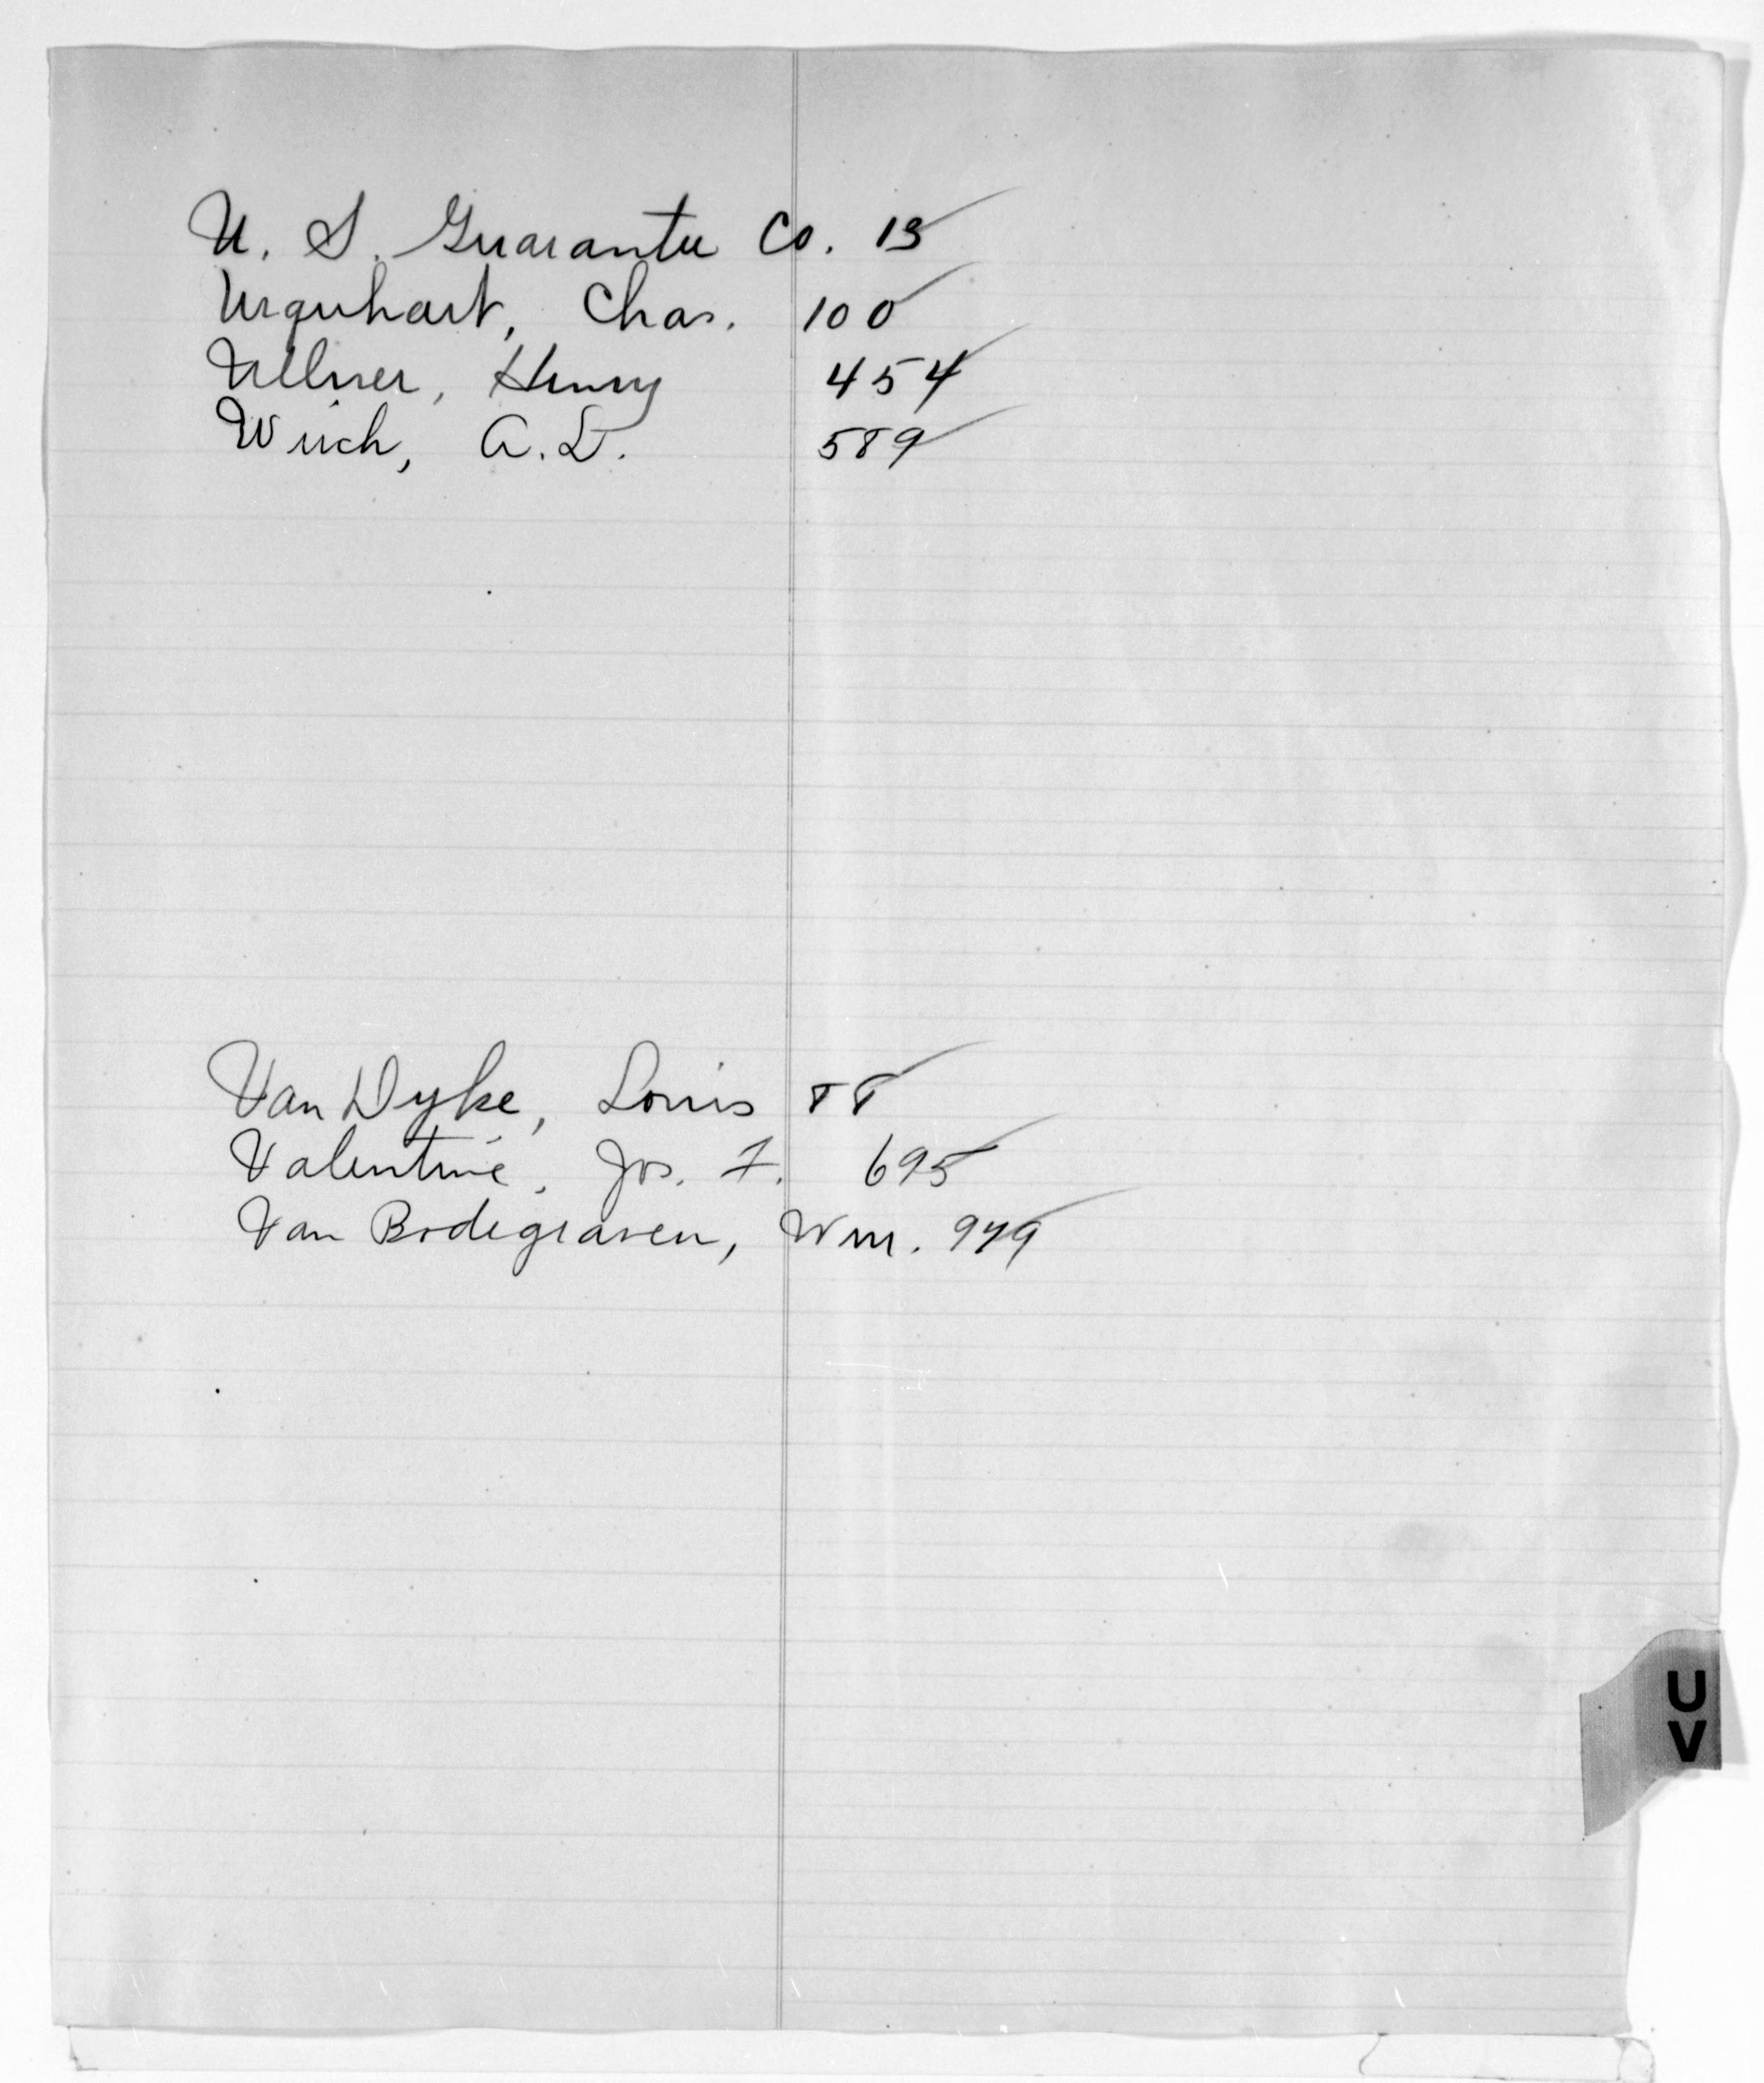 U. S. Guarantee Co. 13
Urquhart, Chas. 100
Ullner, Henry 454
A. D. 589
Van Dyke, Louis 88
Valentine, Jos. F. 695
Van Bodegraven, Wm. 979
U
V